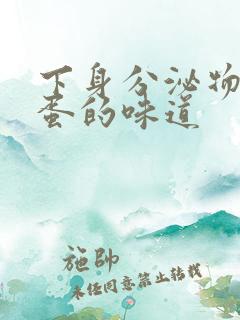 下身分泌物
蛋的味道
施帥
未经同意禁止转载